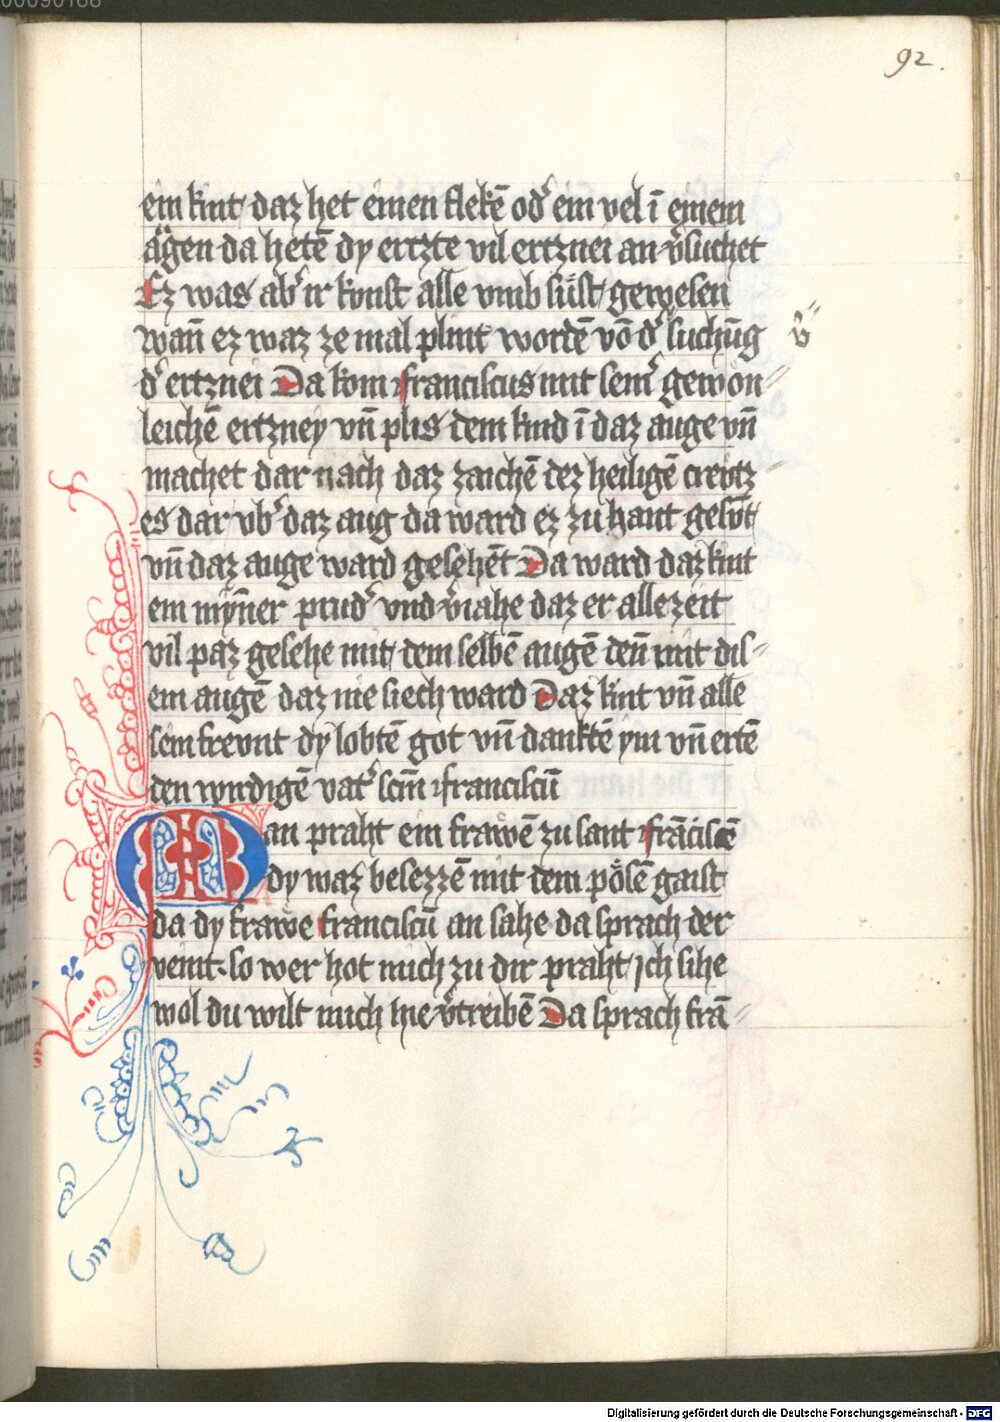 00090168
92.
ein kint daz het einen flekē od̾ ein vel ī einem
ägen da hetē dy ertzte vil ertznei an v̾suchet
Ez was ab̾ ir kvnst alle vmb süst gewesen
wan̄ ez waz ze mal plint wordē vō d̾ suchūg
v̾〃
d̾ ertznei Da kom franciscus mit sein̾ gewon〃
leichē ertzney vn̄ plis dem kind ī daz auge vn̄
machet dar nach daz zaichē dez heiligē crevtz〃
es dar vb̾ daz aug da ward ez zu hant gesv̄t
vn̄ daz auge ward gesehēt Da ward daz kint
ein myn̄er prud̾ vnd v̾iahe daz er alle zeit
vil paz gesehe mit dem selbē augē den̄ mit dis〃
em augē daz nie siech ward Daz kint vn̄ alle
sein frevnt dy lobtē got vn̄ danktē ym vn̄ ertē
den wirdigē vat̾ scm̄ franciscū
Man praht ein frawē zu sant frācisē
dy waz besezzē mit dem pösē gaist
da dy frawe franciscū an sahe da sprach der
veint so wer hot mich zu dir praht Jch sihe
wol du wilt mich hie v̾treibē Da sprach frā〃
Digitalisierung gefördert durch die Deutsche Forschungsgemeinschaft - DFG